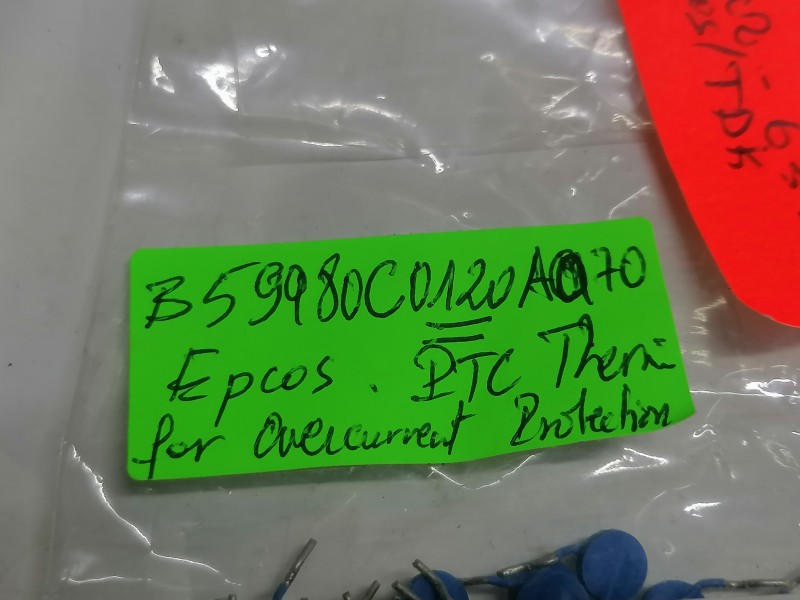 B59980C0120A070
Epcos. PTC Therm
for Overcurrent Protection
/TDK